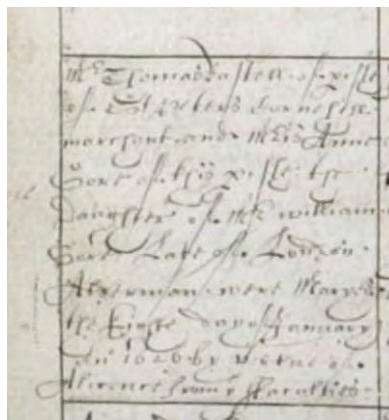 Mr Thomas of ye pish
of St Peters Cornehill
marchant and Mris Anne
Gore of this pish the
Daughter of Mr William
Gore Late of London
Alderman were Maryed
the day of January
An 1626 by vertue of a
Licence from ye faculties